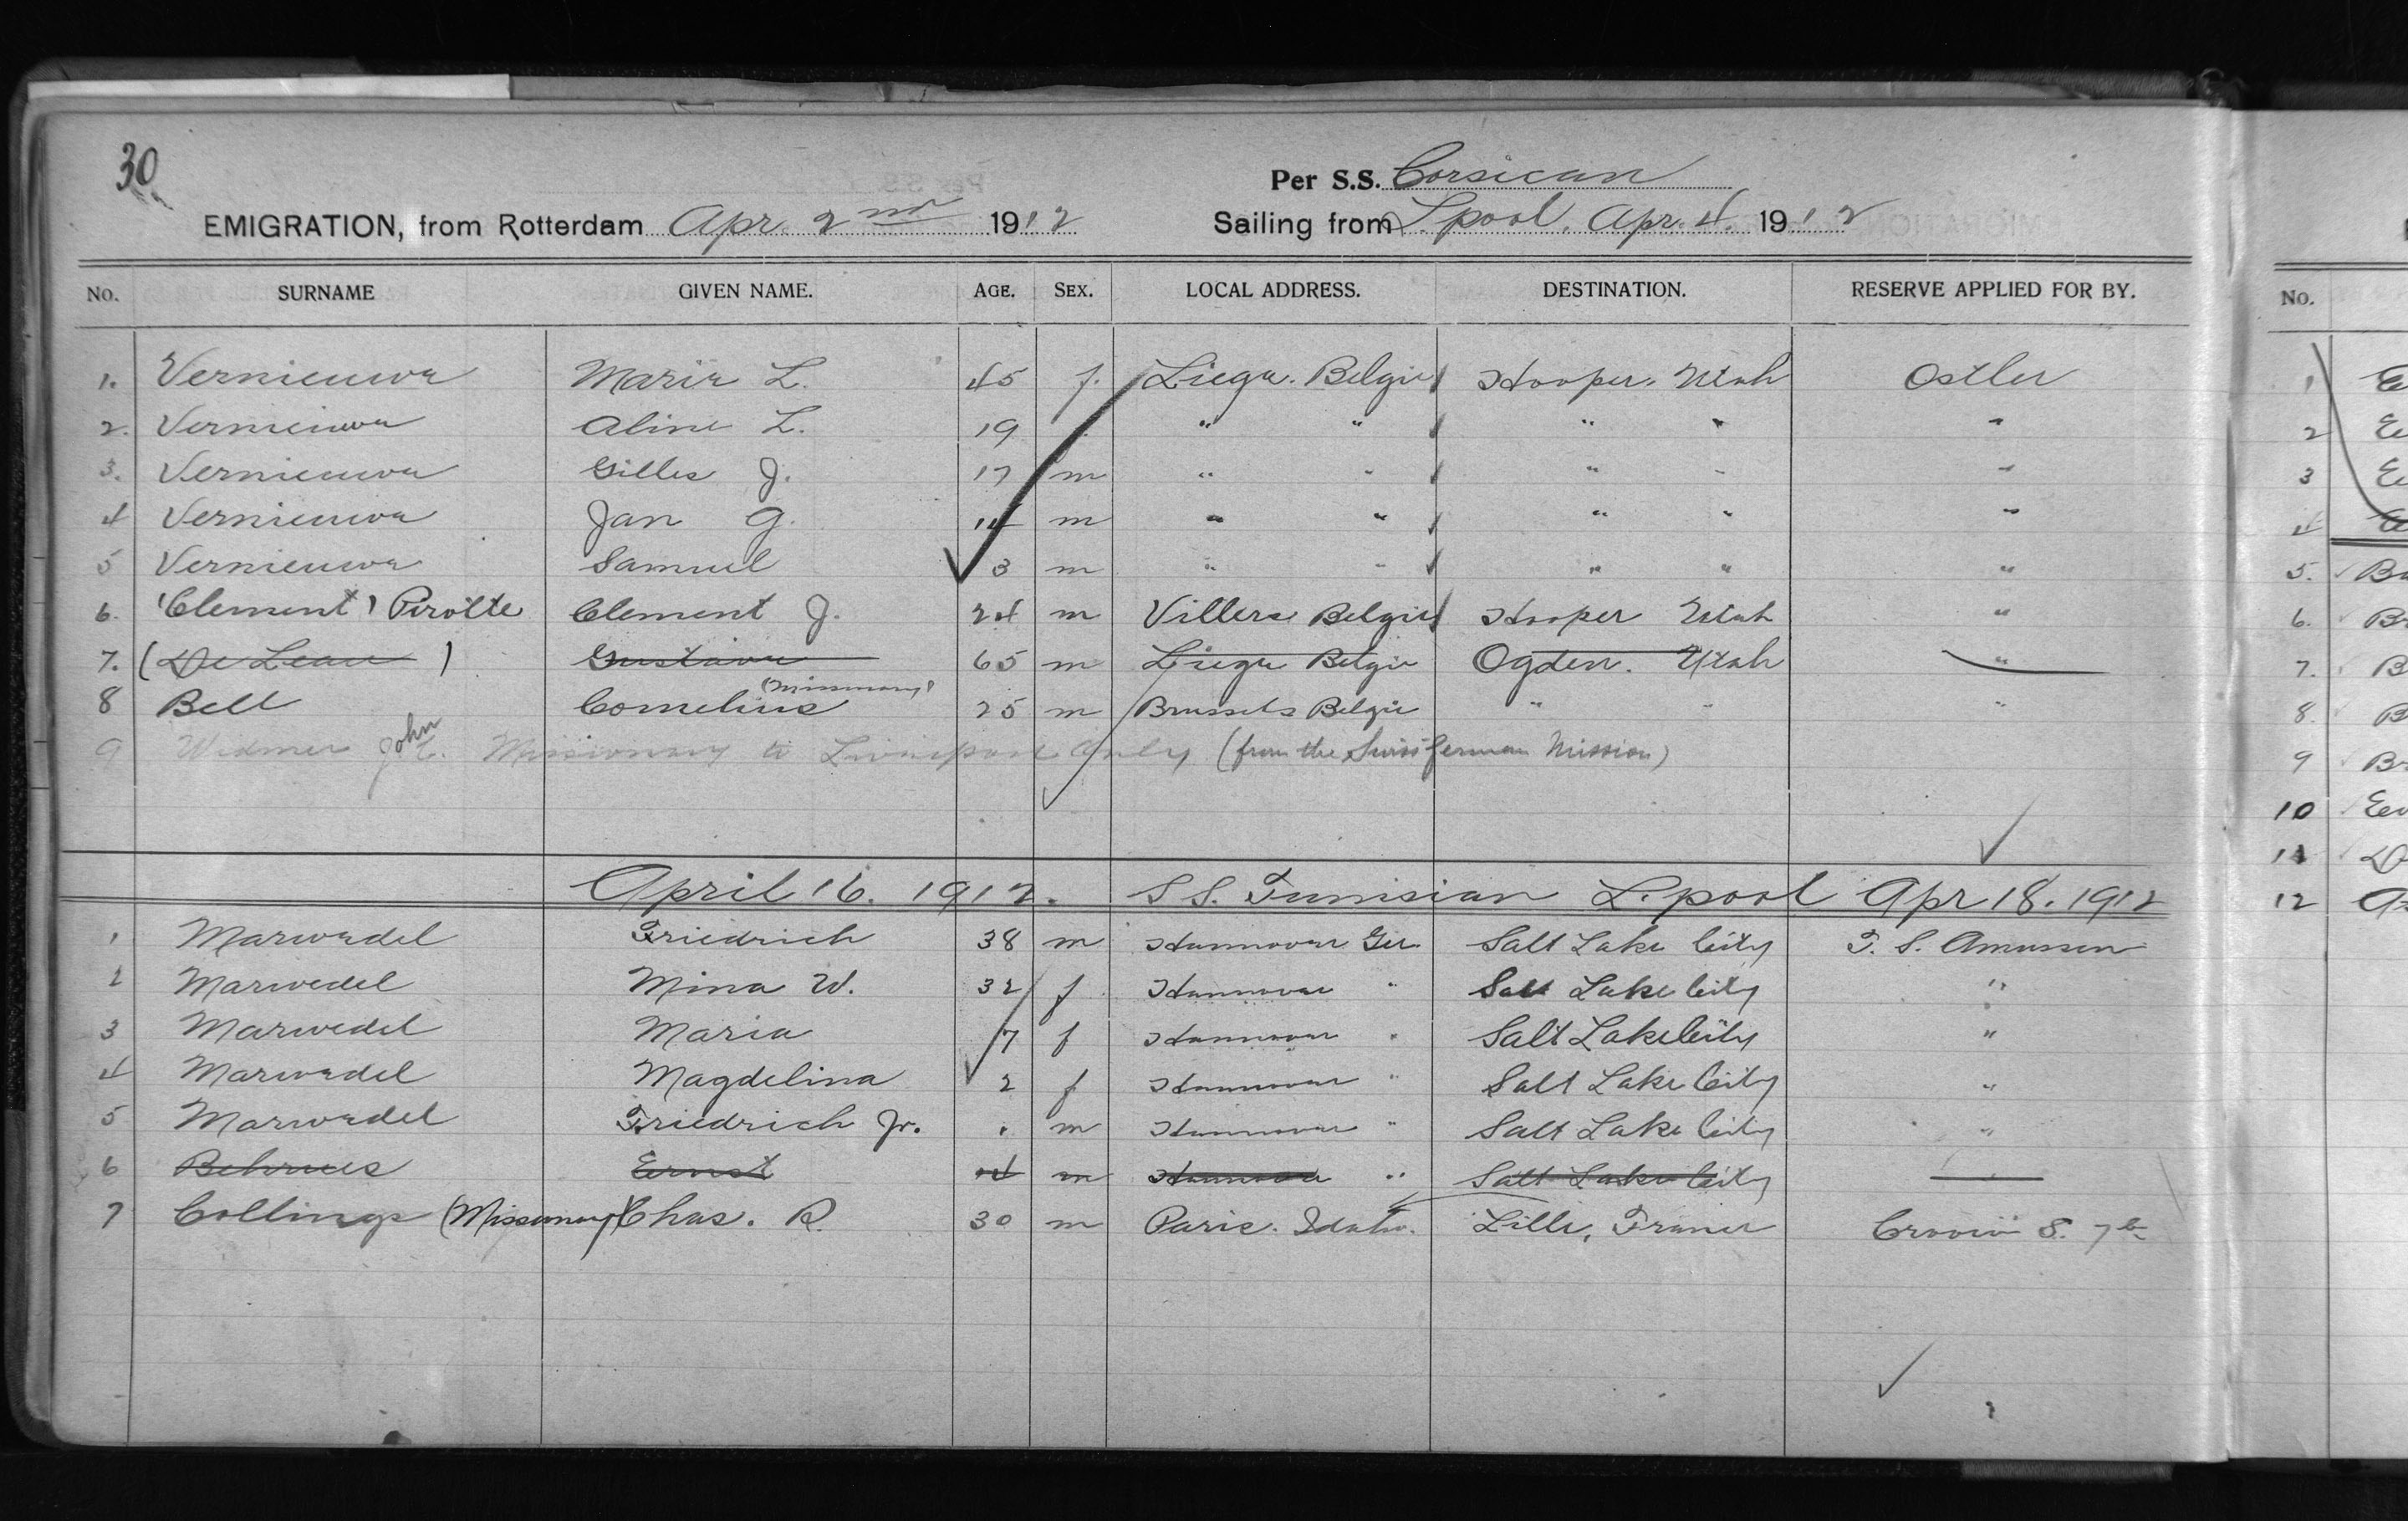 30
Per S.S. Corsican
EMIGRATION, from Rotterdam Apr. 2nd 1912 Sailing from L.pool. Apr. 4. 1912
No. SURNAME GIVEN NAME. AGE. SEX. LOCAL ADDRESS. DESTINATION. RESERVE APPLIED FOR BY. No.
1. Vernieuwe Maria L. 45 f. Liege. Belgie Hooper. Utah Ostler 1
2. Vernieuwe Aline L. 19 " " " " " 2
3. Vernieuwe Gilles J. 17 m " " " " " 3
4 Vernieuwe Jan G. 14 m " " " " " 4
5 Vernieuwe Samuel 3 m " " " " " 5.
6. (Clement) Pirotte Clement J. 24 m Villers Belgie Hooper Utah " 6.
7. (De Leau) Gustave 65 m Liege Belgie Ogden. Utah " 7.
8 Bell Cornelius (Missionary) 25 m Brussels Belgie " " " 8.
9 Widmer John C. Missionary to Liverpool Only (from the Swiss German Mission) 9
10
11
April 16. 1912. S S. Tunisian L.pool Apr 18. 1912 12
1 Marwedel Friedrich 38 m Hannover Ger Salt Lake City T. S. Amussen
2 Marwedel Mina W. 32 f Hannover " Salt Lake City "
3 Marwedel Maria 7 f Hannover " Salt Lake City "
4 Marwedel Magdelina 2 f Hannover " Salt Lake City "
5 Marwedel Friedrich Jr. . m Hannover " Salt Lake City "
6 Behrnes Ernst 4 m Hannover " Salt Lake City
7 Collings (Missionary) Chas. R. 30 m Paris. Idaho. Lille, France